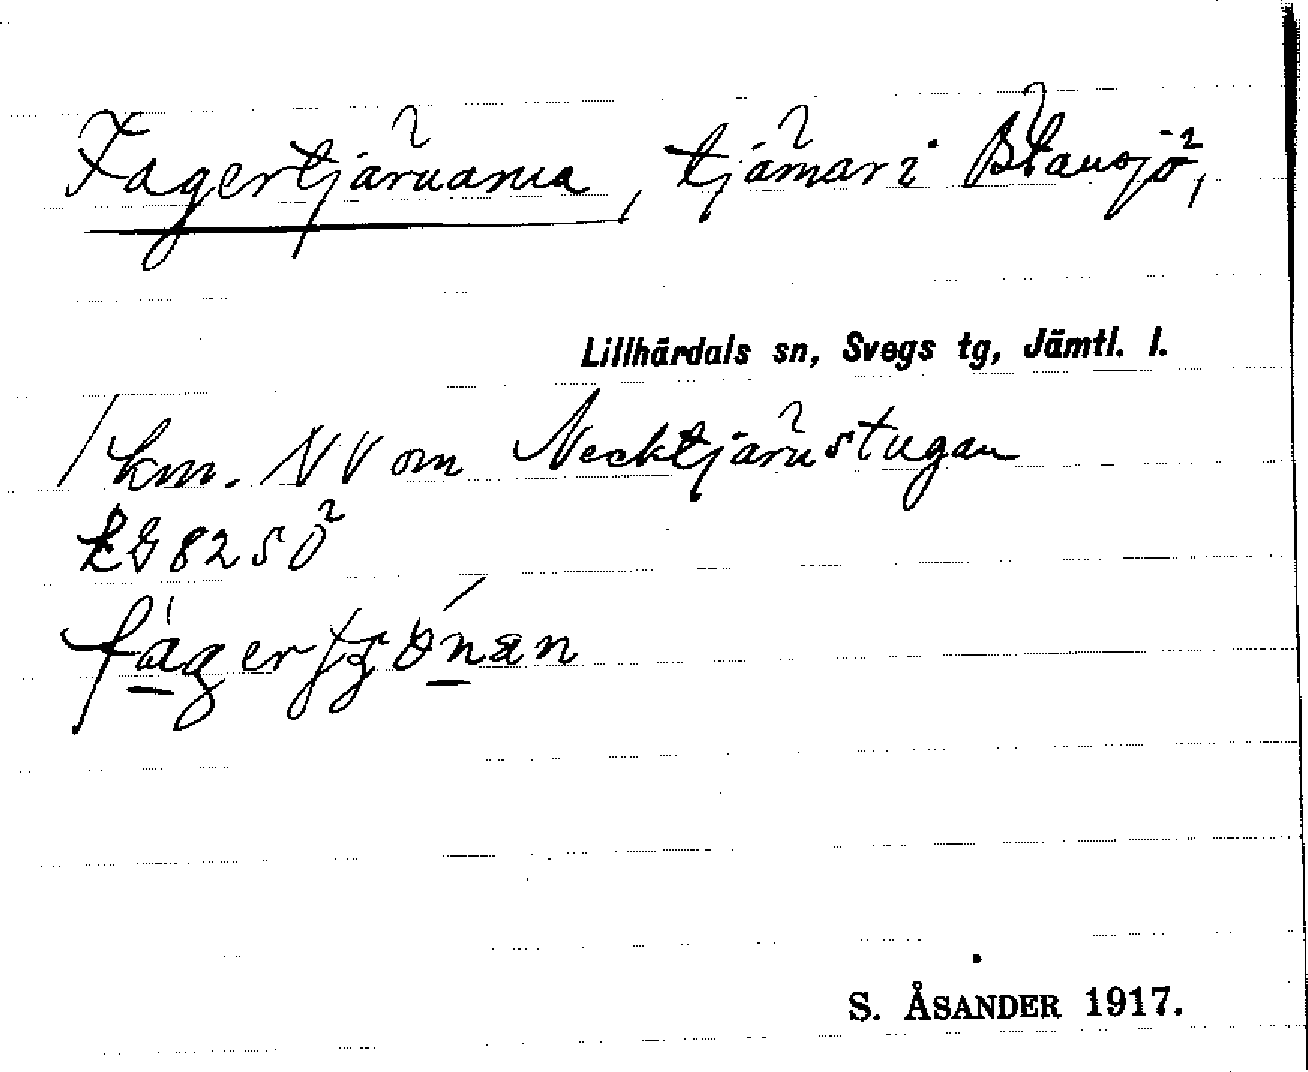 Fagertjärnarna, tjärnar i Blåusjö,
Lillhärdals sn, Svegs tg, Jämtl. l.
1 km. NV om Necktjärnstugan
EG 82 SÖ
fágerʃʒönan
S. ÅSANDER 1917.